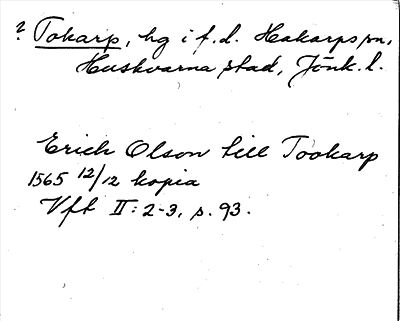 ? Tokarp, hg i f.d. Hakarps sn,
Huskvarna stad, Jönk. l.
Erich Olson till Tookarp
1565 12/12 kopia
Vft II: 2-3, s. 93.